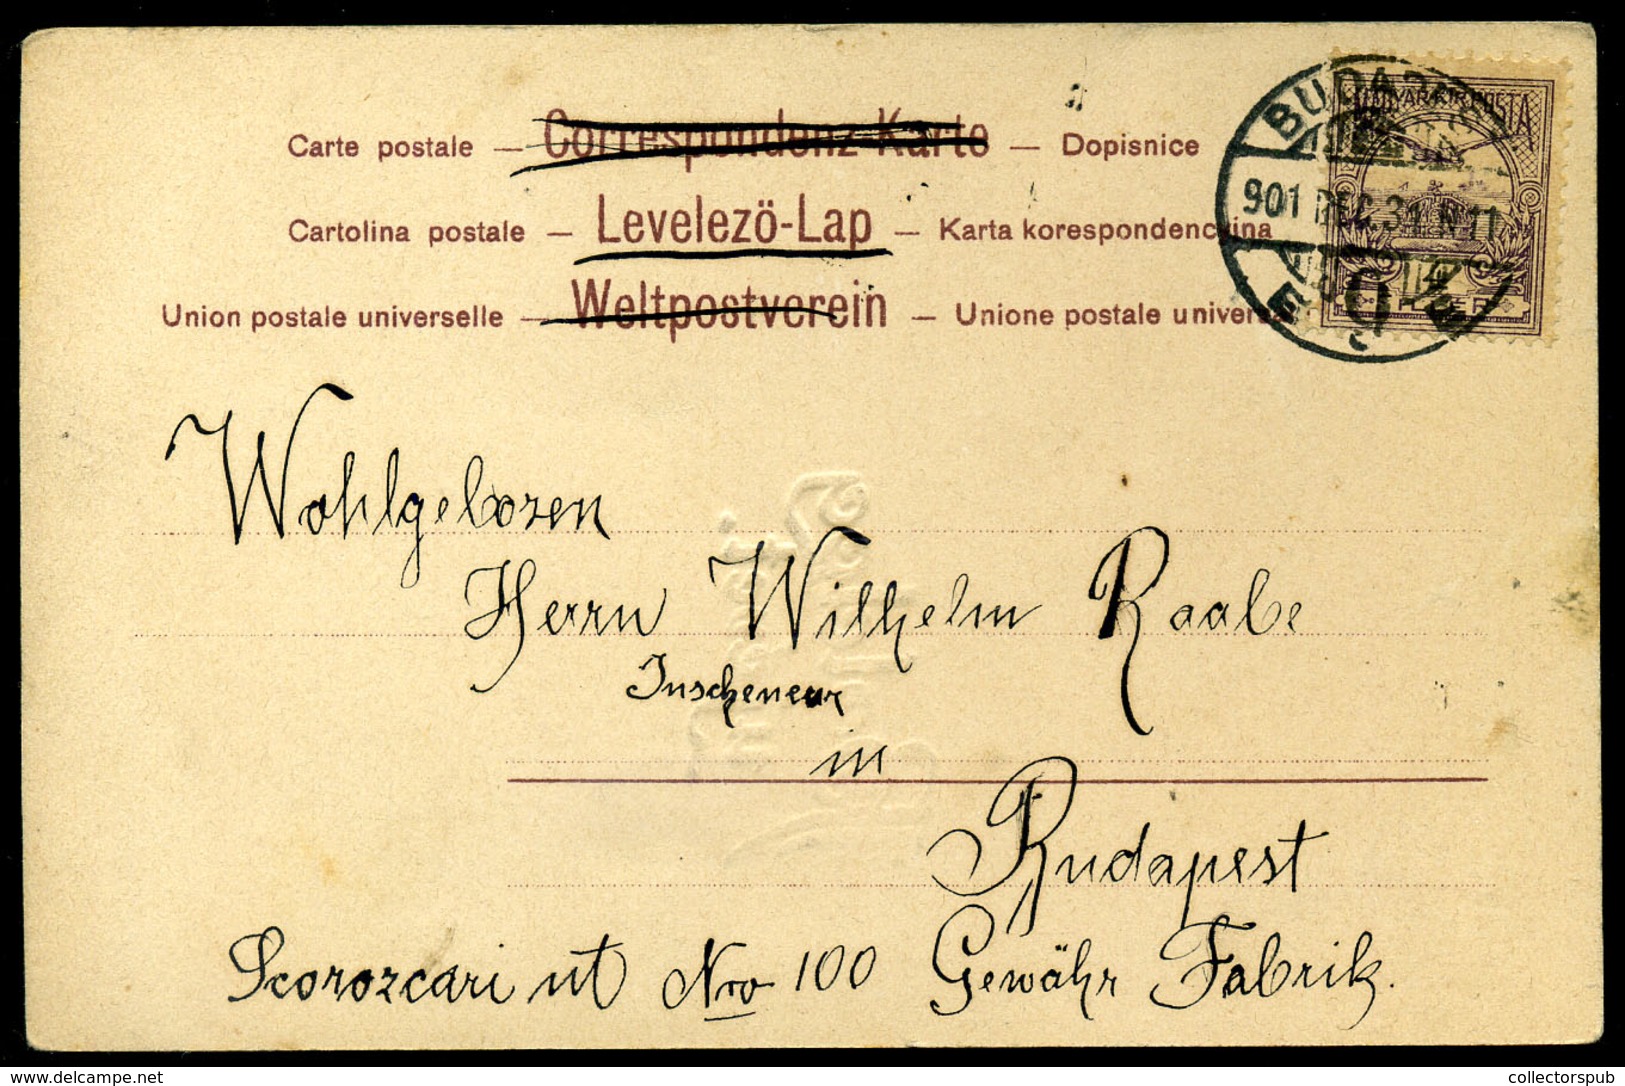 Carte postale — Correspondenz-Karte — Dopisnice
Cartolina postale — Levelezö-Lap — Karta korespondencyina
Union postale universelle — Weltpostverein — Unione postale universa
BUDAPEST
901 DEC. 31 N 11
MAGYAR KIR. POSTA
Wohlgeboren
Herrn Wilhelm Raabe
Inscheneur
in
Budapest
Scorozcari ut Nro 100 Gewähr Fabrik.
collectorspub